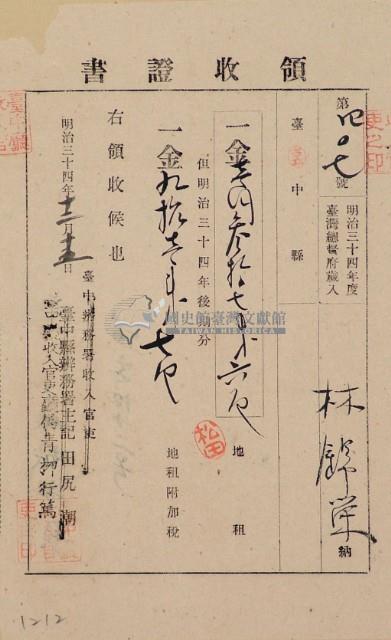 領收證書
第四〇七號
明治三十四年度
臺灣總督府歲入
臺中縣
林錦榮 納
一金壹円參拾七錢六厘 地租
但明治三十四年後期分
一金九拾壹錢七厘 地租附加稅
右領收候也
明治三十四年十二月十五日
臺中辨務署收入官吏
臺中縣辨務署主記 田尻 潮
收入官吏 青柳行萬
松田
國史館臺灣文獻館
TAIWAN HISTORICA
1212